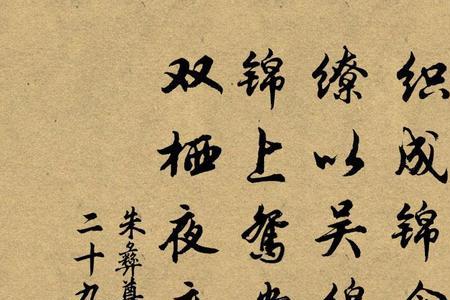 织成锦
缭以吴
锦上鸳
双栖夜
朱彝尊
二十九